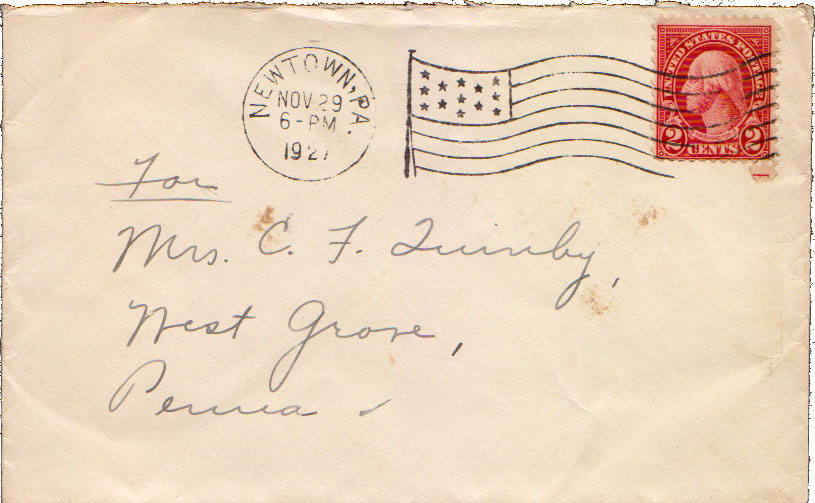 NEWTOWN, PA.
NOV 29
6-PM
1927
UNITED STATES POSTAGE
2 CENTS 2
For
Mrs. C. F. Quimby,
West Grove,
Penna